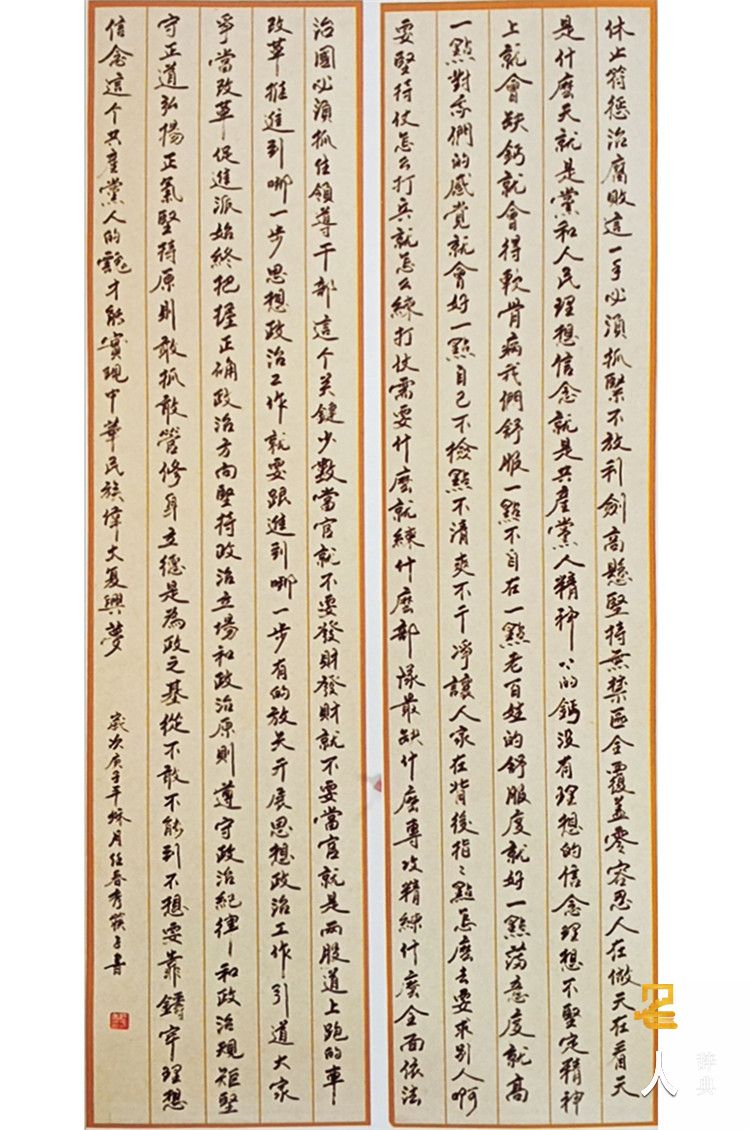 休止符惩治腐敗這一手必須抓緊不放利劍高懸堅持無禁區全覆盖零容忍人在做天在看天
是什麽天就是黨和人民理想信念就是共產黨人精神上的鈣没有理想的信念理想不堅定精神
上就會缺鈣就會得軟骨病我們舒服一點不自在一點老百姓的舒服度就好一點滿意度就高
一點對我們的感覺就會好一點自己不檢點不清爽不干凈讓人家在背後指々點怎麽去要求别人啊
要堅持仗怎么打兵就怎么練打仗需要什麽就練什麽部隊最缺什麽專攻精練什麽全面依法
治國必須抓住領導干部這个关鍵少數當官就不要發財發財就不要當官就是兩股道上跑的車
改革推進到哪一步思想政治工作就要跟進到哪一步有的放矢开展思想政治工作引道大家
爭當改革促進派始終把握正确政治方向堅持政治立場和政治原則遵守政治紀律和政治規矩堅
守正道弘揚正氣堅持原則敢抓敢管修身立德是為政之基從不敢不能到不想要靠鑄牢理想
信念這个共產黨人的魂才能實現中華民族偉大复興夢
歲次庚子年秋月任春秀筱子書
人
辞典